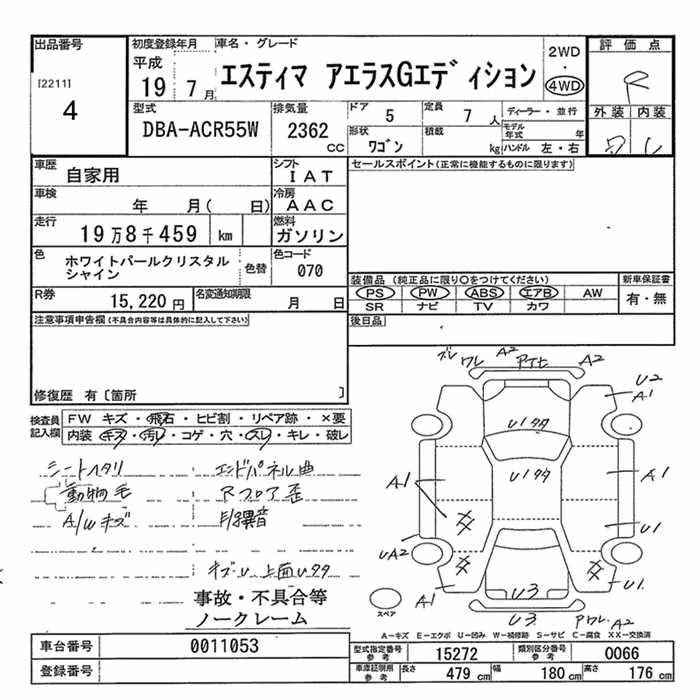 出品番号
[2211]
4
初度登録年月
平成
19 7 月
車名・グレード
エスティマ アエラスGエディション
2WD
・
4WD
評価点
R
外装 内装
型式
DBA-ACR55W
排気量
2362
cc
ドア
5
定員
7 人
形状
ワゴン
積載
kg
ディーラー・並行
モデル年式
年
ハンドル 左・右
車歴
自家用
シフト
IAT
車検
年 月( 日)
冷房
AAC
走行
19万8千459 km
燃料
ガソリン
色
ホワイトパールクリスタル
シャイン
色替
色コード
070
R券
15,220円
名変通知期限
月 日
セールスポイント(正常に機能するものに限ります)
装備品 (純正品に限り○をつけてください)
PS PW ABS エアB AW
SR ナビ TV カワ
新車保証書
有・無
注意事項申告欄(不具合内容等は具体的に記入して下さい)
後日品
修復歴 有〔箇所 〕
検査員
記入欄
FW キズ・飛石・ヒビ割・リペア跡・×要
内装・キズ・汚レ・コゲ・穴・スレ・キレ・破レ
シートヘタリ
動物毛
A/Wキズ
エンドパネル曲
Rフロア歪
異音
上面Uタタ
事故・不具合等
ノークレーム
ワレ A2 A2
U2
A1
Uタタ
Uタタ
A1
A1
U1
UA2
A1
U1
U3
U3
A2
スペア
A-キズ E-エクボ U-凹み W-補修跡 S-サビ C-腐食 XX-交換済
車台番号
0011053
登録番号
型式指定番号
参考
15272
類別区分番号
参考
0066
車庫証明用
参考
長さ
479 cm
幅
180 cm
高さ
176 cm